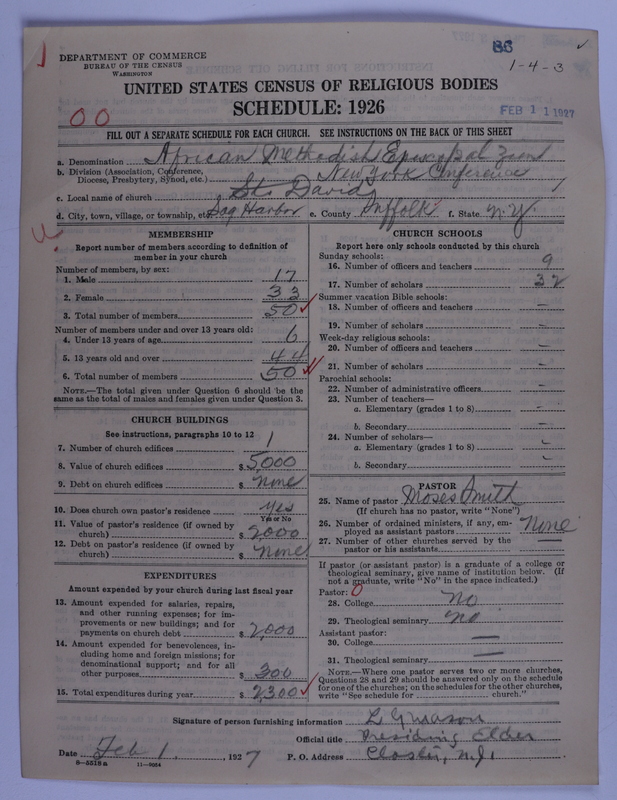 86
1-4-3
DEPARTMENT OF COMMERCE
BUREAU OF THE CENSUS
WASHINGTON
UNITED STATES CENSUS OF RELIGIOUS BODIES
SCHEDULE: 1926
FEB 11 1927
00
FILL OUT A SEPARATE SCHEDULE FOR EACH CHURCH. SEE INSTRUCTIONS ON THE BACK OF THIS SHEET
a. Denomination African Methodist Episcopal Zion
b. Division (Association, Conference, Diocese, Presbytery, Synod, etc.) New York Conference
c. Local name of church St. David
d. City, town, village, or township, etc. Sag Harbor e. County Suffolk f. State N.Y.
MEMBERSHIP
Report number of members according to definition of
member in your church
Number of members, by sex:
1. Male 17
2. Female 33
3. Total number of members 50
Number of members under and over 13 years old:
4. Under 13 years of age 6
5. 13 years old and over 44
6. Total number of members 50
NOTE.—The total given under Question 6 should be the
same as the total of males and females given under Question 3.
CHURCH BUILDINGS
See instructions, paragraphs 10 to 12
7. Number of church edifices 1
8. Value of church edifices $5,000
9. Debt on church edifices $ none
10. Does church own pastor's residence yes
Yes or No
11. Value of pastor's residence (if owned by
church) $2000
12. Debt on pastor's residence (if owned by
church) $ none
EXPENDITURES
Amount expended by your church during last fiscal year
13. Amount expended for salaries, repairs,
and other running expenses; for im-
provements or new buildings; and for
payments on church debt $2,000
14. Amount expended for benevolences, in-
cluding home and foreign missions; for
denominational support; and for all
other purposes $300
15. Total expenditures during year $2300
CHURCH SCHOOLS
Report here only schools conducted by this church
Sunday schools:
16. Number of officers and teachers 9
17. Number of scholars 32
Summer vacation Bible schools:
18. Number of officers and teachers —
19. Number of scholars —
Week-day religious schools:
20. Number of officers and teachers —
21. Number of scholars —
Parochial schools:
22. Number of administrative officers —
23. Number of teachers—
a. Elementary (grades 1 to 8) —
b. Secondary —
24. Number of scholars—
a. Elementary (grades 1 to 8) —
b. Secondary —
PASTOR
25. Name of pastor Moses Smith
(If church has no pastor, write "None")
26. Number of ordained ministers, if any, em-
ployed as assistant pastors None
27. Number of other churches served by the
pastor or his assistants —
If pastor (or assistant pastor) is a graduate of a college or
theological seminary, give name of institution below. (If
not a graduate, write "No" in the space indicated.)
Pastor: 0
28. College no
29. Theological seminary no
Assistant pastor:
30. College —
31. Theological seminary —
NOTE.—Where one pastor serves two or more churches,
Questions 28 and 29 should be answered only on the schedule
for one of the churches; on the schedules for the other churches,
write "See schedule for church."
Signature of person furnishing information L
Official title Presiding Elder
Date Feb 1, 1927 P. O. Address Closter, N.J.
8—5518a 11—9054